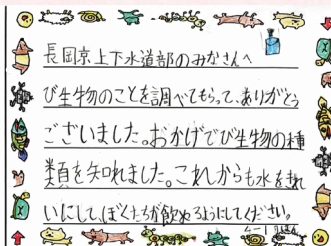 長岡京上下水道部のみなさんへ
び生物のことを調べてもらって、ありがとう
ございました。おかげでび生物の種
類を知れました。これからも水をきれ
いにして、ぼくたちが飲めるようにしてください。